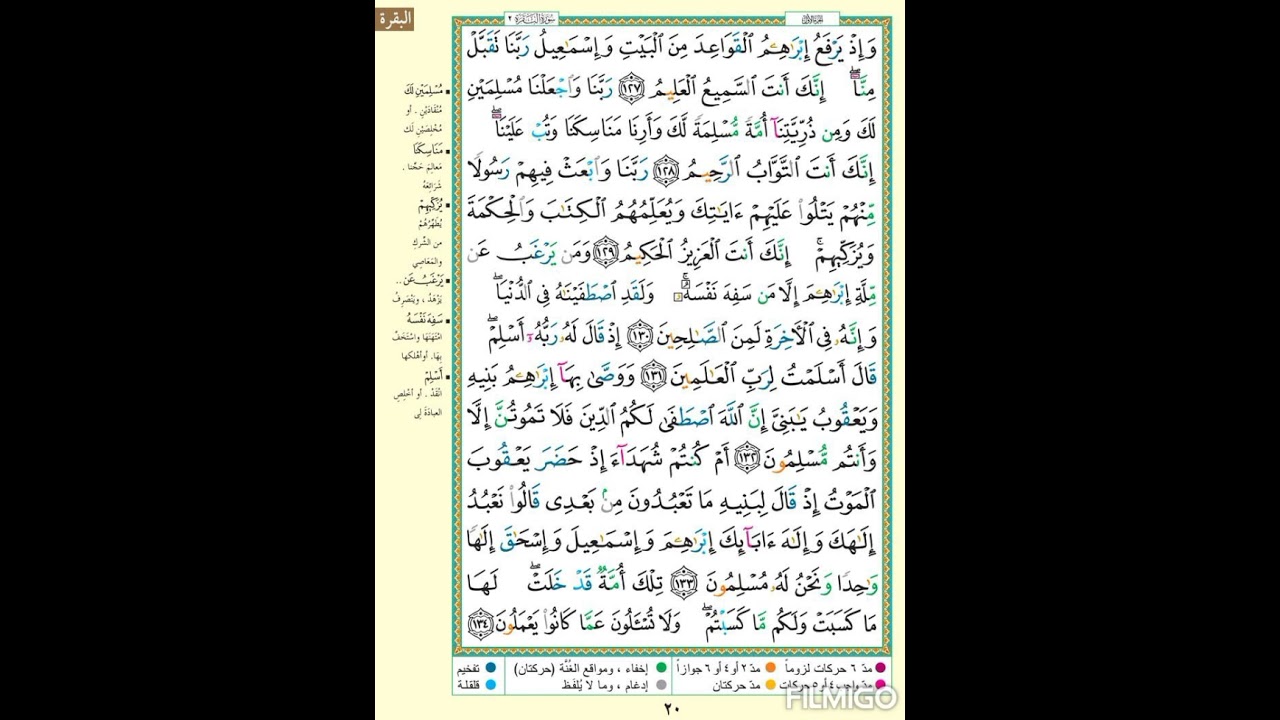 البقرة
سورة البقرة ٢
الجزء الأول
وَإِذْ يَرْفَعُ إِبْرَٰهِـۧمُ ٱلْقَوَاعِدَ مِنَ ٱلْبَيْتِ وَإِسْمَـٰعِيلُ رَبَّنَا تَقَبَّلْ
مِنَّآ ۖ إِنَّكَ أَنتَ ٱلسَّمِيعُ ٱلْعَلِيمُ ١٢٧ رَبَّنَا وَٱجْعَلْنَا مُسْلِمَيْنِ
لَكَ وَمِن ذُرِّيَّتِنَآ أُمَّةً مُّسْلِمَةً لَّكَ وَأَرِنَا مَنَاسِكَنَا وَتُبْ عَلَيْنَآ ۖ
إِنَّكَ أَنتَ ٱلتَّوَّابُ ٱلرَّحِيمُ ١٢٨ رَبَّنَا وَٱبْعَثْ فِيهِمْ رَسُولًا
مِّنْهُمْ يَتْلُوا۟ عَلَيْهِمْ ءَايَـٰتِكَ وَيُعَلِّمُهُمُ ٱلْكِتَـٰبَ وَٱلْحِكْمَةَ
وَيُزَكِّيهِمْ ۚ إِنَّكَ أَنتَ ٱلْعَزِيزُ ٱلْحَكِيمُ ١٢٩ وَمَن يَرْغَبُ عَن
مِّلَّةِ إِبْرَٰهِـۧمَ إِلَّا مَن سَفِهَ نَفْسَهُۥ ۚ وَلَقَدِ ٱصْطَفَيْنَـٰهُ فِى ٱلدُّنْيَا ۖ
وَإِنَّهُۥ فِى ٱلْـَٔاخِرَةِ لَمِنَ ٱلصَّـٰلِحِينَ ١٣٠ إِذْ قَالَ لَهُۥ رَبُّهُۥٓ أَسْلِمْ ۖ
قَالَ أَسْلَمْتُ لِرَبِّ ٱلْعَـٰلَمِينَ ١٣١ وَوَصَّىٰ بِهَآ إِبْرَٰهِـۧمُ بَنِيهِ
وَيَعْقُوبُ يَـٰبَنِىَّ إِنَّ ٱللَّهَ ٱصْطَفَىٰ لَكُمُ ٱلدِّينَ فَلَا تَمُوتُنَّ إِلَّا
وَأَنتُم مُّسْلِمُونَ ١٣٢ أَمْ كُنتُمْ شُهَدَآءَ إِذْ حَضَرَ يَعْقُوبَ
ٱلْمَوْتُ إِذْ قَالَ لِبَنِيهِ مَا تَعْبُدُونَ مِنۢ بَعْدِى قَالُوا۟ نَعْبُدُ
إِلَـٰهَكَ وَإِلَـٰهَ ءَابَآئِكَ إِبْرَٰهِـۧمَ وَإِسْمَـٰعِيلَ وَإِسْحَـٰقَ إِلَـٰهًا
وَٰحِدًا وَنَحْنُ لَهُۥ مُسْلِمُونَ ١٣٣ تِلْكَ أُمَّةٌ قَدْ خَلَتْ ۖ لَهَا
مَا كَسَبَتْ وَلَكُم مَّا كَسَبْتُمْ ۖ وَلَا تُسْـَٔلُونَ عَمَّا كَانُوا۟ يَعْمَلُونَ ١٣٤
مُسْلِمَيْنِ لَكَ
مُنْقَادَيْنِ . أو
مُخْلِصَيْنِ لَك
مَنَاسِكَنَا
مَعَالِمَ حَجِّنا .
شَرَائِعَهُ
يُزَكِّيهِمْ
يُطَهِّرُهُمْ
من الشِّرْكِ
والمَعَاصِي
يَرْغَبُ عَن ..
يَزْهَدُ ، ويَنْصَرِفُ
سَفِهَ نَفْسَهُ
امْتَهَنَهَا واسْتَخَفَّ
بِهَا. أو أهْلَكها
أَسْلِمْ
انْقَدْ . أو أخْلِصِ
العِبَادَةَ لِي
مدّ ٦ حركات لزوماً مدّ ٢ أو ٤ أو ٦ جوازاً إخفاء ، ومواقع الغُنَّة (حركتان) تفخيم
مدّ واجب ٤ أو ٥ حركات مدّ حركتان إدغام ، وما لا يُلفَظ قلقلة
٢٠
FILMIGO